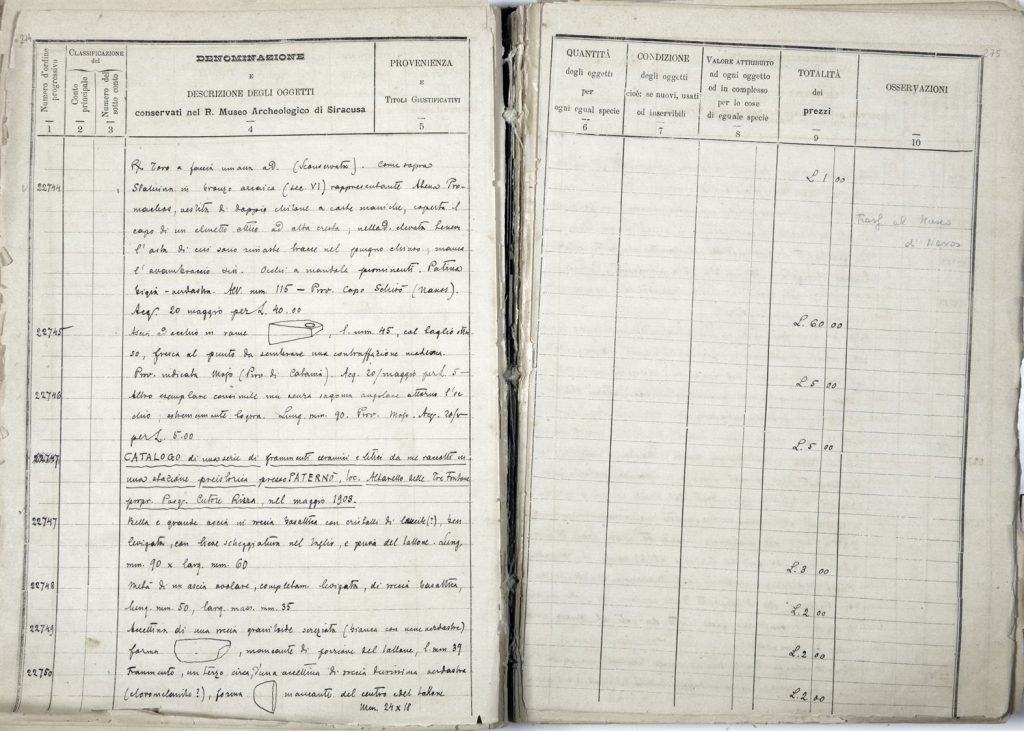 274
Numero d'ordine progressivo
Classificazione del
Conto principale
Numero del sotto conto
DENOMINAZIONE
E
DESCRIZIONE DEGLI OGGETTI
conservati nel R. Museo Archeologico di Siracusa
PROVENIENZA
E
Titoli Giustificativi
1 2 3 4 5
Toro a faccia umana a D. (Sconservata). Come sopra
22744 Statuina in bronzo arcaica (sec. VI) rappresentante Atena Pro-
machos, vestita di doppio chitone a corte maniche, coperto il
capo di un elmetto attico ad alta cresta, nella D. elevata
l'asta di cui sono rimaste tracce nel pugno chiuso, manca
l'avambraccio sin. Occhi a mandorla prominenti. Patina
grigia-verdastra. Alt. mm. 115 — Prov. Capo Schisò (Naxos).
Acq. 20 maggio per L. 40.00
22745 Ascia ad occhio in rame, l. mm. 45, col taglio otte-
so, fresca al punto da sembrare una contraffazione moderna.
Prov. indicata Mojo (Prov. di Catania). Acq. 20/maggio per L. 5—
22746 Altro esemplare consimile ma senza sagoma angolare attorno l'oc-
chio, estremamente logora. Lung. mm. 90. Prov. Mojo. Acq. 20/V
per L. 5.00
22747 CATALOGO di una serie di frammenti ceramici e litici da me raccolti in
una stazione preistorica presso PATERNÒ, loc. delle Tre Fontane
propr. Pasq. Cutore Rizza, nel maggio 1903.
22747 Bella e grande ascia in roccia basaltica con cristalli di leucite (?), ben
levigata, con lieve scheggiatura nel taglio, e priva del tallone. Lung.
mm. 90 x larg. mm. 60
22748 Metà di un ascia ovolare, completam. levigata, di roccia basaltica,
lung. mm. 50, larg. mass. mm. 35
22749 Accettina di una roccia granitoide screziata (bianca con vene verdastre)
forma, mancante di porzione del tallone, l. mm 39
22750 Frammento, un terzo circa, d'una accettina di roccia durissima verdastra
(cloromelanite?), forma mancante del centro e del tallone
Mm. 24 x 18
275
QUANTITÀ
degli oggetti
per
ogni egual specie
CONDIZIONE
degli oggetti
cioè: se nuovi, usati
od inservibili
Valore attribuito
ad ogni oggetto
od in complesso
per le cose
di eguale specie
TOTALITÀ
dei
prezzi
OSSERVAZIONI
6 7 8 9 10
L. 1 00
Trasf. al Museo
di Naxos
L. 60 00
L. 5 00
L. 5 00
L. 3 00
L. 2 00
L. 2 00
L. 2 00